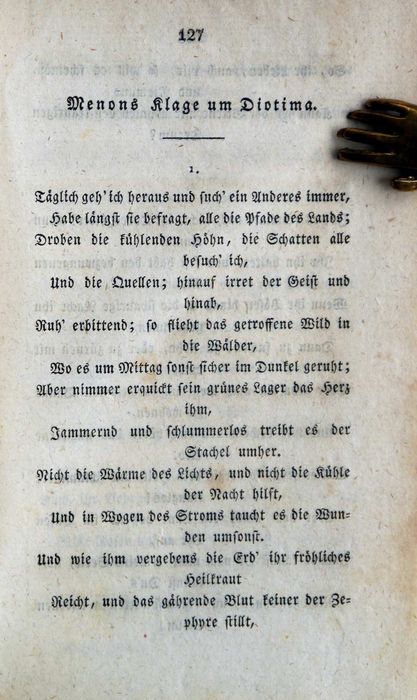 127
Menons Klage um Diotima.
1.
Täglich geh' ich heraus und such' ein Anderes immer,
Habe längst sie befragt, alle die Pfade des Lands;
Droben die kühlenden Höhn, die Schatten alle
besuch' ich,
Und die Quellen; hinauf irret der Geist und
hinab,
Ruh' erbittend; so flieht das getroffene Wild in
die Wälder,
Wo es um Mittag sonst sicher im Dunkel geruht;
Aber nimmer erquickt sein grünes Lager das Herz
ihm,
Jammernd und schlummerlos treibt es der
Stachel umher.
Nicht die Wärme des Lichts, und nicht die Kühle
der Nacht hilft,
Und in Wogen des Stroms taucht es die Wun-
den umsonst.
Und wie ihm vergebens die Erd' ihr fröhliches
Heilkraut
Reicht, und das gährende Blut keiner der Ze-
phyre stillt,